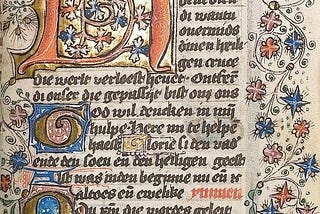 di wantu
ouermids
dinen heili
gen cruce
die werlt verloest heues Ontfer
di onser die bist om ons
wil dencken in mij
hulpe here mi te helpe
haest Glorie si den vad
ende den soen en̄ den heilighen geest
was inden beginne nu en̄
altoes en̄ ewelike